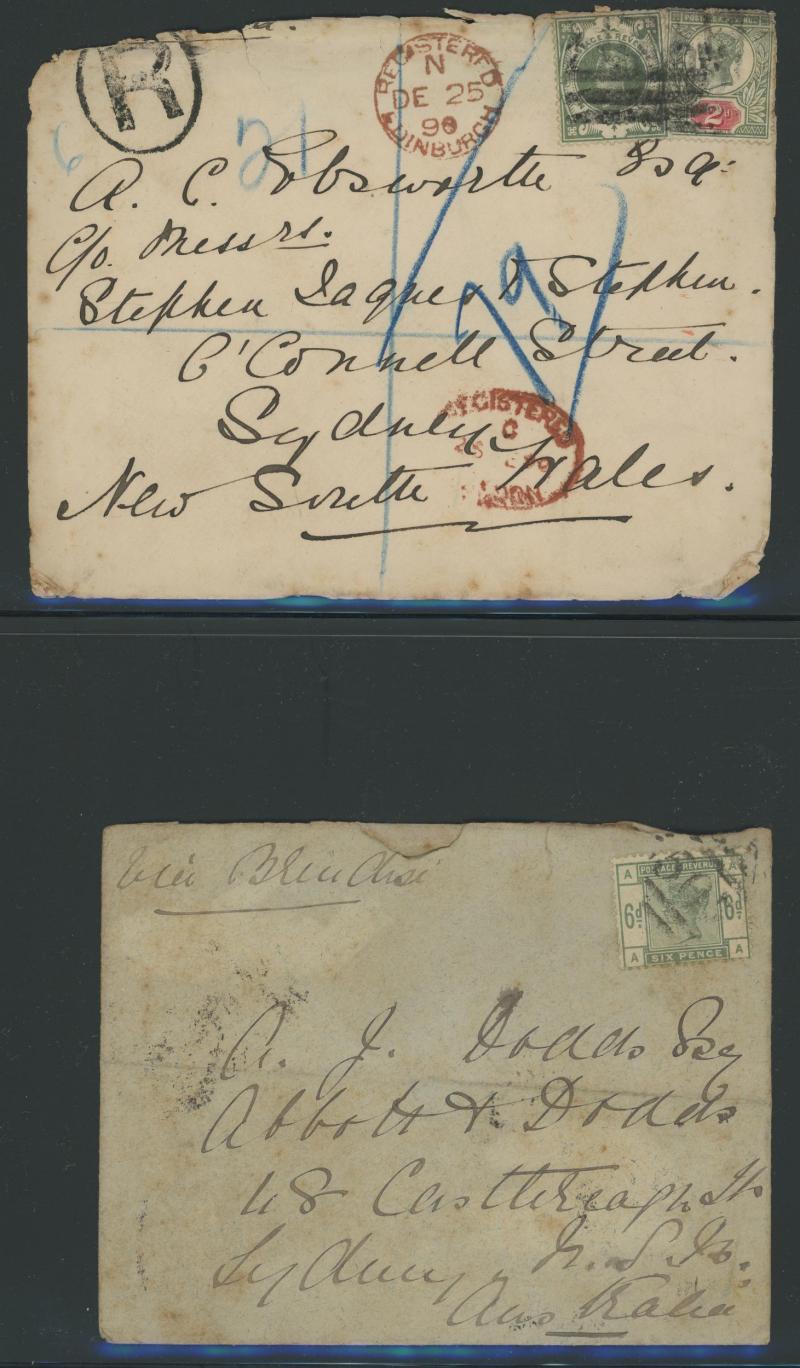 R
REGISTERED
N
DE 25
90
EDINBURGH
POSTAGE & REVENUE
2d
21
A. C. Ebsworth Esq:
C/o. Messrs.
Stephen Jaques & Stephen.
O'Connell Street.
Sydney
New South Wales.
REGISTERED
LONDON
via Brindisi
POSTAGE & REVENUE
A A
6d. 6d.
A A
SIX PENCE
A. J. Dodds Esq
Abbott & Dodds
48 Castlereagh St
Sydney, N. S. W.
Australia